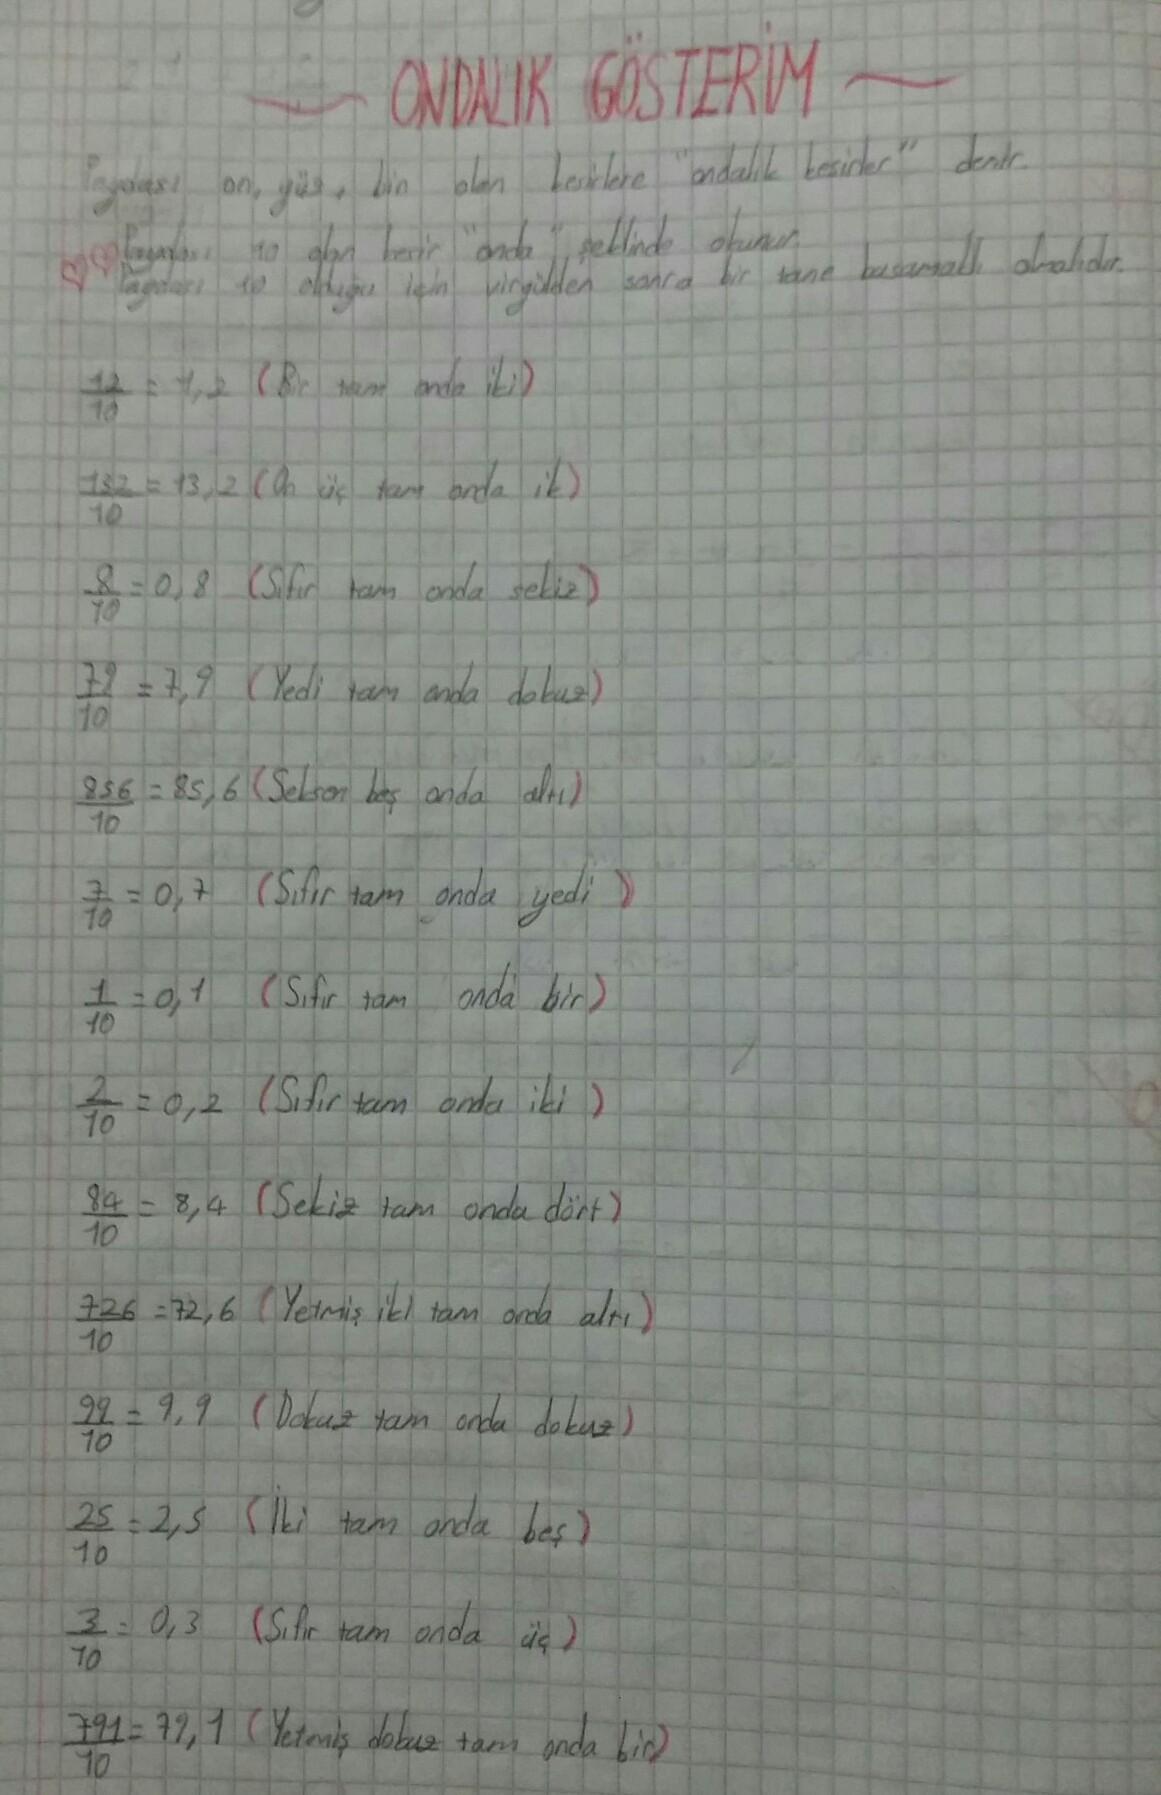 ONDALIK GÖSTERİM
Paydası on, yüz, bin olan kesirlere "ondalık kesirler" denir.
Paydası 10 olan kesir "onda" şeklinde okunur.
Paydası 10 olduğu için virgülden sonra bir tane basamaklı olmalıdır.
12/10 = 1,2 (Bir tam onda iki)
132/10 = 13,2 (On üç tam onda iki)
8/10 = 0,8 (Sıfır tam onda sekiz)
79/10 = 7,9 (Yedi tam onda dokuz)
856/10 = 85,6 (Seksen beş onda altı)
7/10 = 0,7 (Sıfır tam onda yedi)
1/10 = 0,1 (Sıfır tam onda bir)
2/10 = 0,2 (Sıfır tam onda iki)
84/10 = 8,4 (Sekiz tam onda dört)
726/10 = 72,6 (Yetmiş iki tam onda altı)
99/10 = 9,9 (Dokuz tam onda dokuz)
25/10 = 2,5 (İki tam onda beş)
3/10 = 0,3 (Sıfır tam onda üç)
791/10 = 79,1 (Yetmiş dokuz tam onda bir)